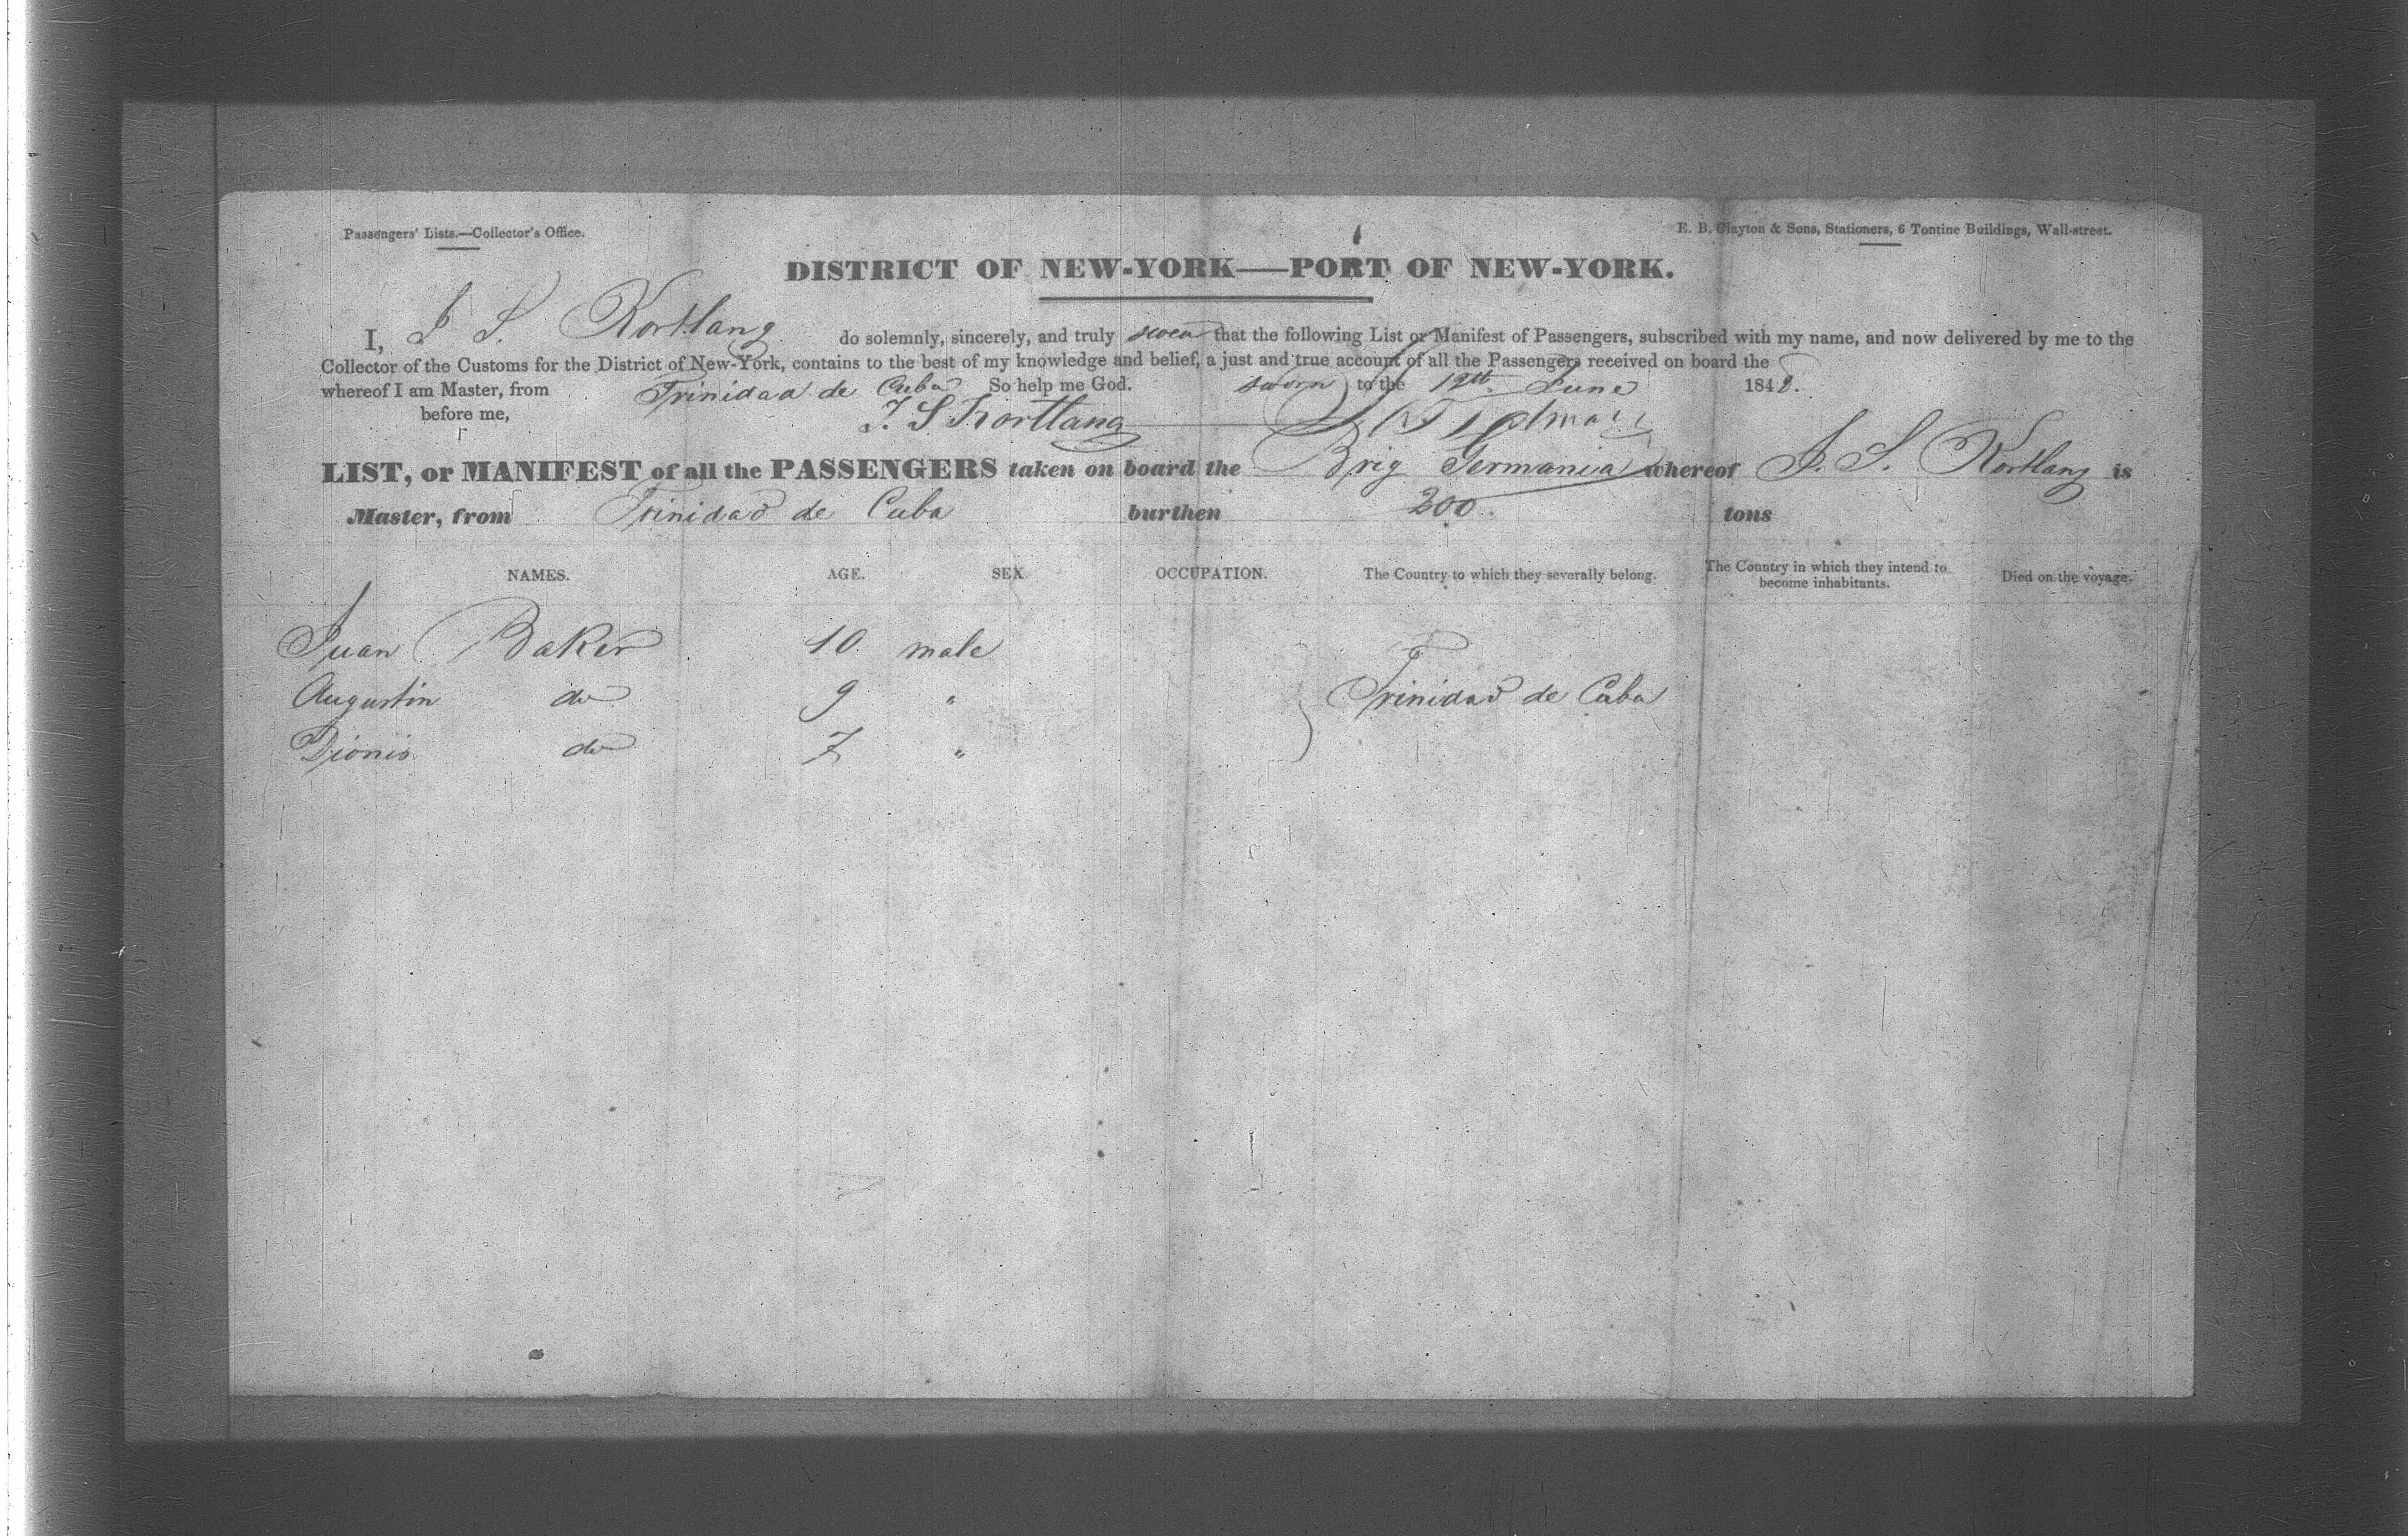 Passengers' Lists.—Collector's Office.
E. B. Clayton & Sons, Stationers, 6 Tontine Buildings, Wall-street.
DISTRICT OF NEW-YORK—PORT OF NEW-YORK.
I, J. S. Kortlang do solemnly, sincerely, and truly swear that the following List or Manifest of Passengers, subscribed with my name, and now delivered by me to the
Collector of the Customs for the District of New-York, contains to the best of my knowledge and belief, a just and true account of all the Passengers received on board the
whereof I am Master, from Trinidad de Cuba So help me God. sworn to the 12th June 1848.
before me, J. S Kortlang
LIST, or MANIFEST of all the PASSENGERS taken on board the Brig Germania whereof J. S. Kortlang is
Master, from Trinidad de Cuba burthen 200 tons
NAMES. AGE. SEX. OCCUPATION. The Country to which they severally belong. The Country in which they intend to become inhabitants. Died on the voyage.
Juan Baker 10 male
Augustin do 9 " Trinidad de Cuba
Dionis do 7 "